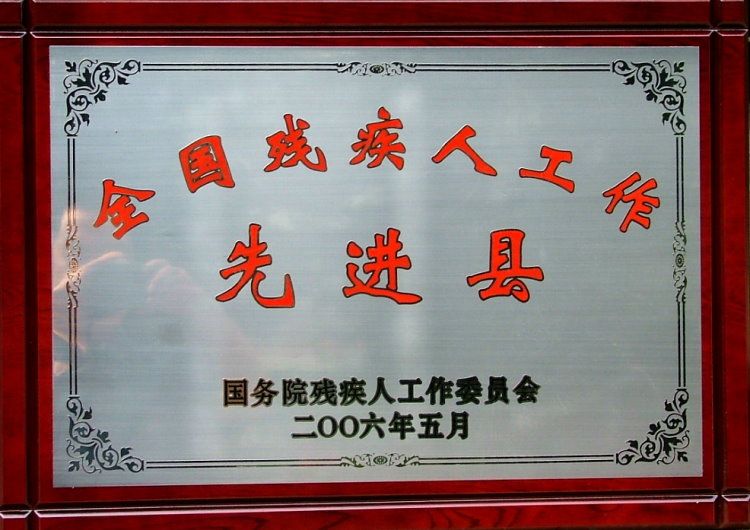 全国残疾人工作
先进县
国务院残疾人工作委员会
二〇〇六年五月